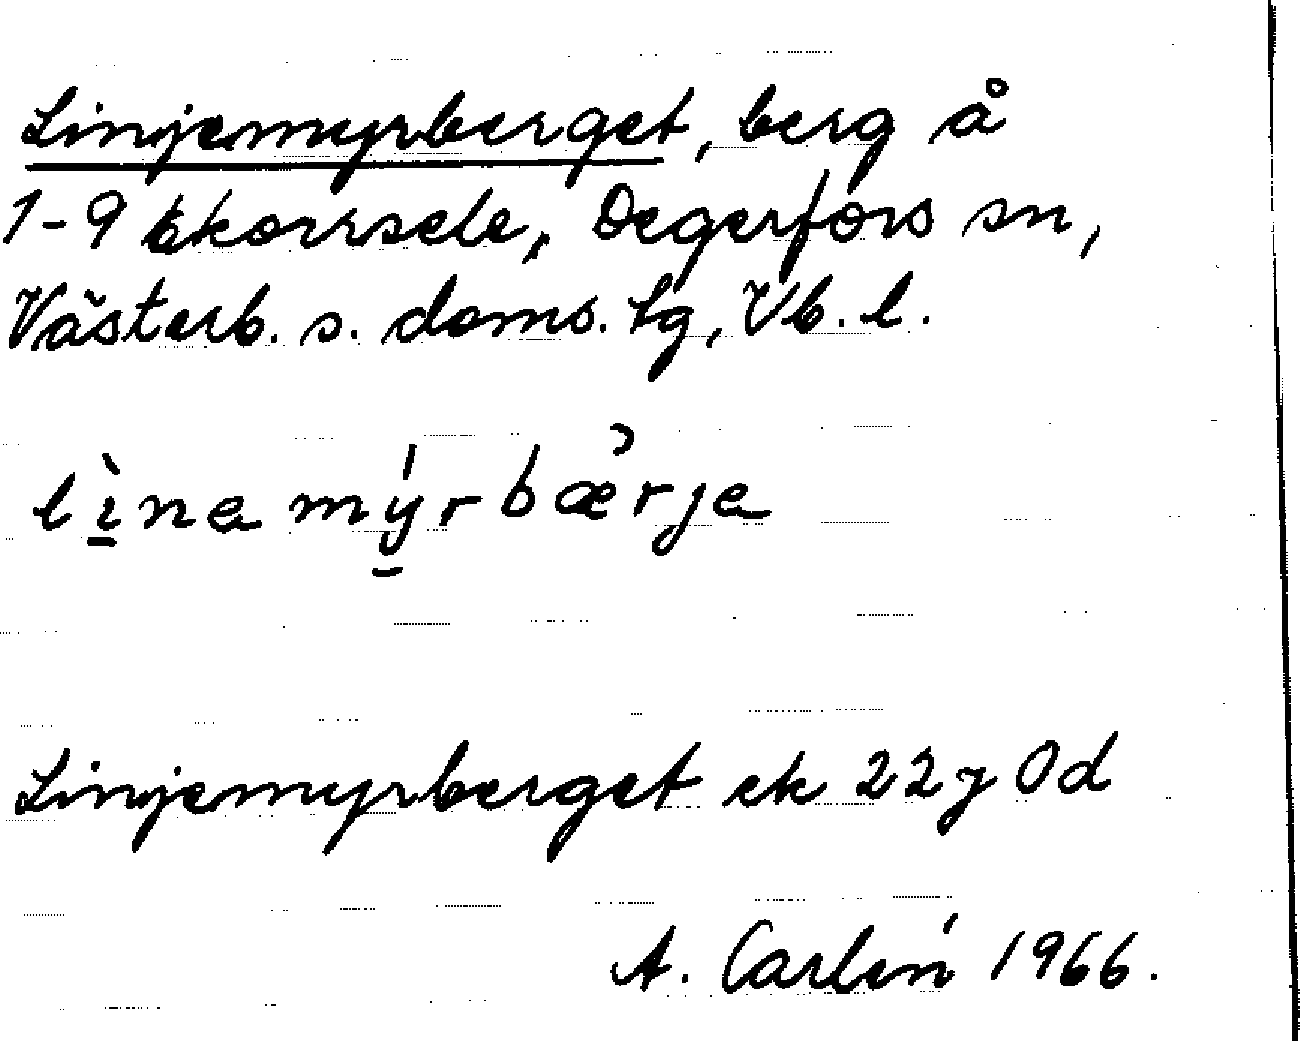 Linjemyrberget, berg å
1-9 Ekorrsele, Degerfors sn,
Västerb. s. doms. tg, Vb. l.
lìna mýr bær̀ja
Linjemyrberget ek 22 j 0 d
A. Carlén 1966.